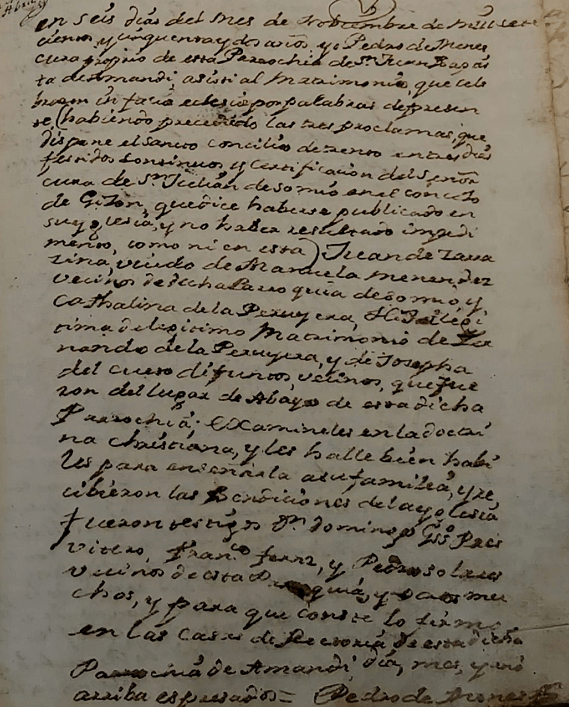 en seis dias del mes de Nobiembre de mill sete
cientos y cinquenta y dos años, yo Pedro de
cura propio de esta Parrochia de Sn. Juan Bapas
ta de Amandi asisti al Matrimonio, que cele
braron in facie eclesie por palabras de presen
te (habiendo precedido las tres proclamas, que
dispone el Santo concilio de trento en tres dias
festidos continuos, y certificacion del Señor
cura de Sn. Julian de Somio en el concejo
de Gijon, que dice haberse publicado en
su yglesia, y no haber resultado impedi
mento, como ni en esta) Juan de
viudo de Manuela Menendez
vecino de dicha Parroquia de Somio, y
Cathalina de la Peruyera, Hija legi
tima de legitimo Matrimonio de Fer
nando de la Peruyera, y de Josepha
del Cueto difuntos, vecinos, que fue
ron del lugar de Abayo de esta dicha
Parrochia: examineles en la doctri
na christiana, y les halle bien habi
les para enseñarla a su familia, y re
cibieron las Bendiciones de la yglesia
fueron testigos Dn. Domingo Pres
vitero, Franco. Fernz, y Pedro Solares
vecinos de esta Parroquia, y otros mu
chos, y para que conste lo firmo
en las casas de Rectoria de esta dicha
Parrochia de Amandi, dia, mes, y año
arriba espresados = Pedro de